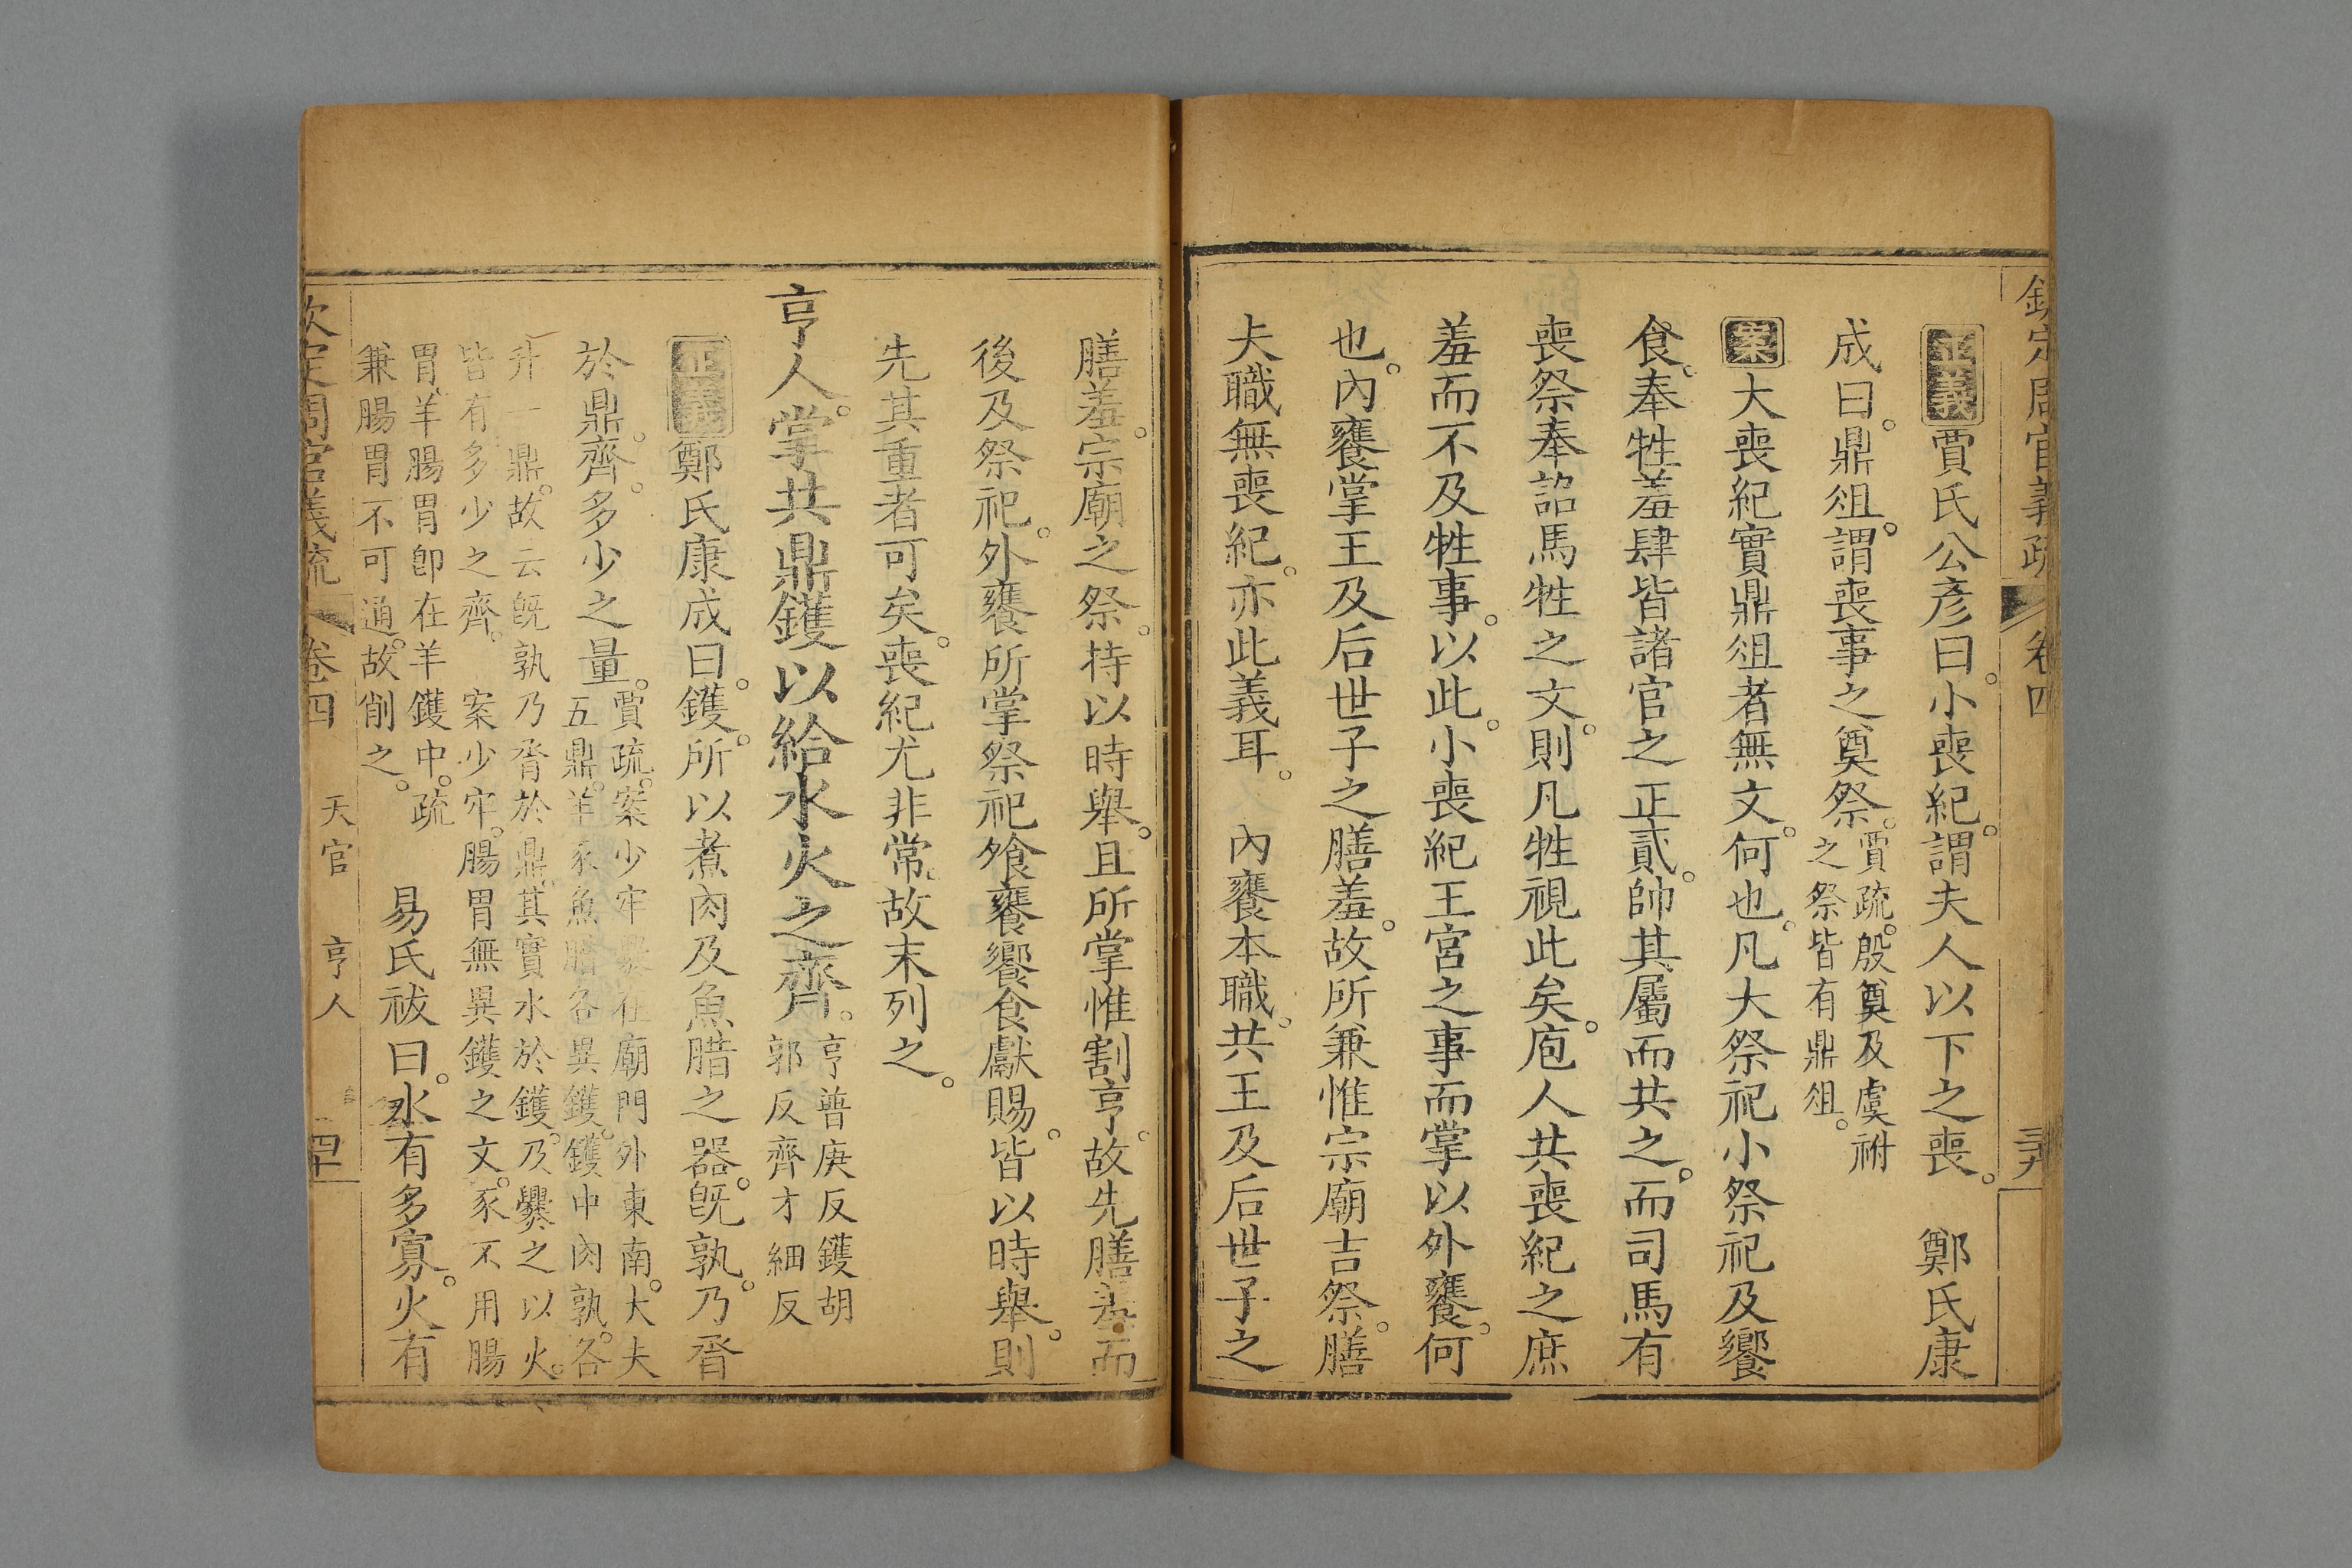 欽定周官義疏 卷四
正義賈氏公彥曰。小喪紀。謂夫人以下之喪。 鄭氏康
成曰。鼎俎。謂喪事之奠祭。賈疏。殷奠及虞祔
之祭皆有鼎俎。
案大喪紀實鼎俎者無文。何也。凡大祭祀小祭祀及饗
食。奉牲羞肆皆諸官之正貳。帥其屬而共之。而司馬有
喪祭奉詔馬牲之文。則凡牲視此矣。庖人共喪紀之庶
羞而不及牲事。以此。小喪紀王宮之事而掌以外饔。何
也。內饔掌王及后世子之膳羞。故所兼惟宗廟吉祭。膳
夫職無喪紀。亦此義耳。 內饔本職。共王及后世子之
膳羞。宗廟之祭。持以時舉。且所掌惟割亨。故先膳羞而
後及祭祀。外饔所掌祭祀飧饔饗食獻賜。皆以時舉。則
先其重者可矣。喪紀尤非常。故末列之。
亨人。掌共鼎鑊以給水火之齊。亨普庚反鑊胡
郭反齊才細反
正義鄭氏康成曰。鑊。所以煮肉及魚腊之器。旣孰。乃脀
於鼎。齊。多少之量。賈疏。案少牢爨在廟門外東南。大夫
五鼎。羊豕魚腊各異鑊。鑊中肉孰。各
升一鼎。故云旣孰乃脀於鼎。其實水於鑊。乃爨之以火。
皆有多少之齊。 案少牢。腸胃無異鑊之文。豕不用腸
胃。羊腸胃卽在羊鑊中。疏
兼腸胃不可通。故削之。 易氏祓曰。水有多寡。火有
欽定周官義疏 卷四 天官 亨人